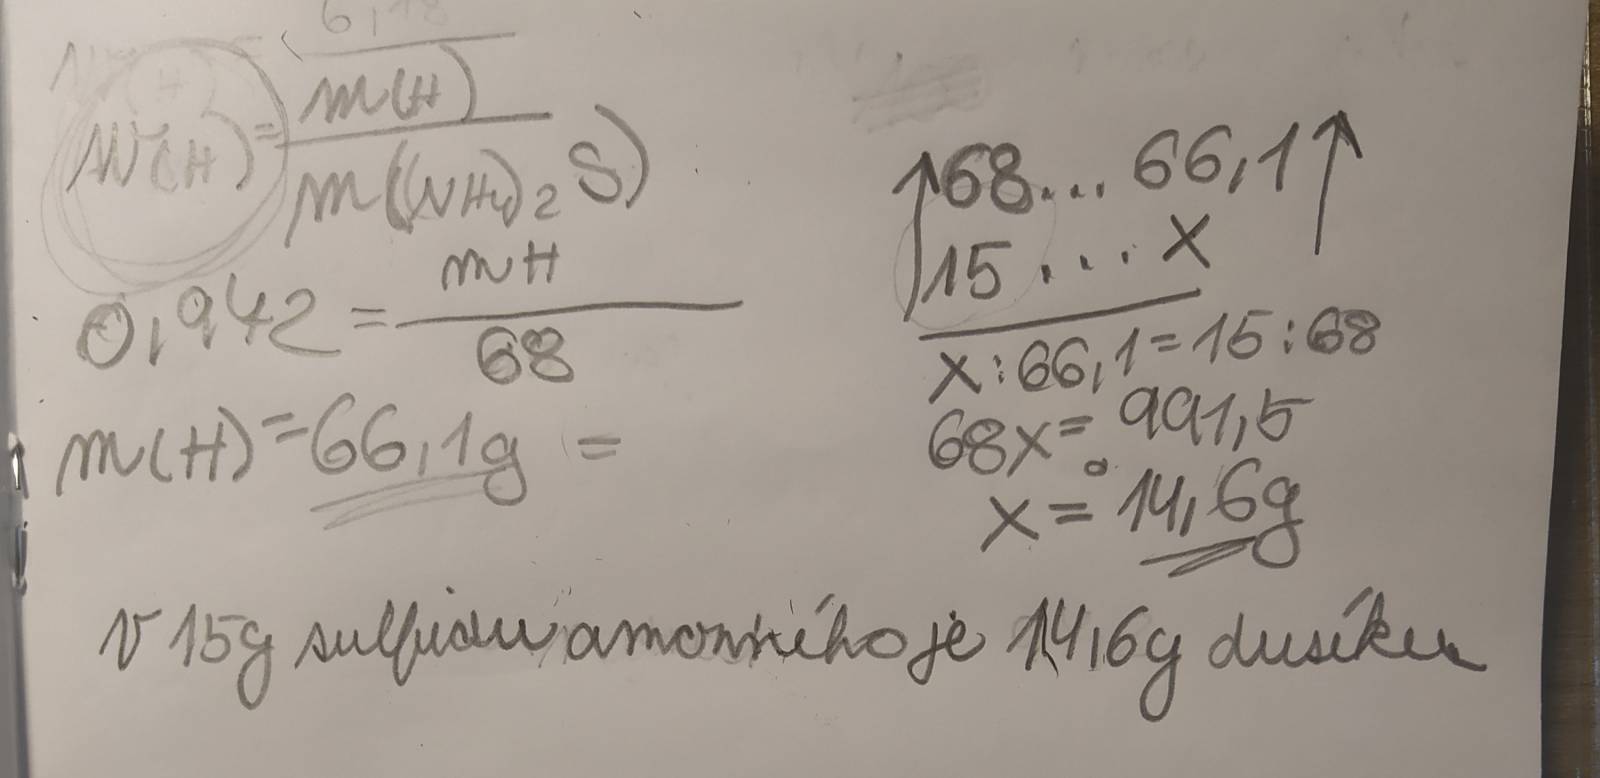 6,18
w(H) = m(H) / m((NH4)2S)
0,942 = mH / 68
m(H) = 66,1g =
68... 66,1
15... x
x:66,1=15:68
68x= 991,5
x= 14,6g
V 15g sulfidu amonného je 14,6g dusíku